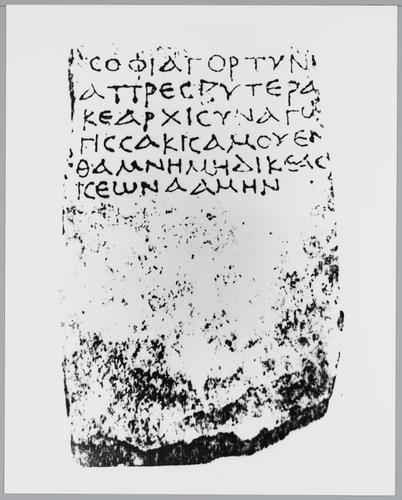 CΟΦΙΑΓΟΡΤΥΝΙ
ΑΠΡΕCΒΥΤΕΡΑ
ΚΕΑΡΧΙCΥΝΑΓω
ΓΙCCΑΚΙCΑΜΟΥΕΝ
ΘΑΜΝΗΜΗΔΙΚΕΑC
ΙCΕωΝΑΑΜΗΝ